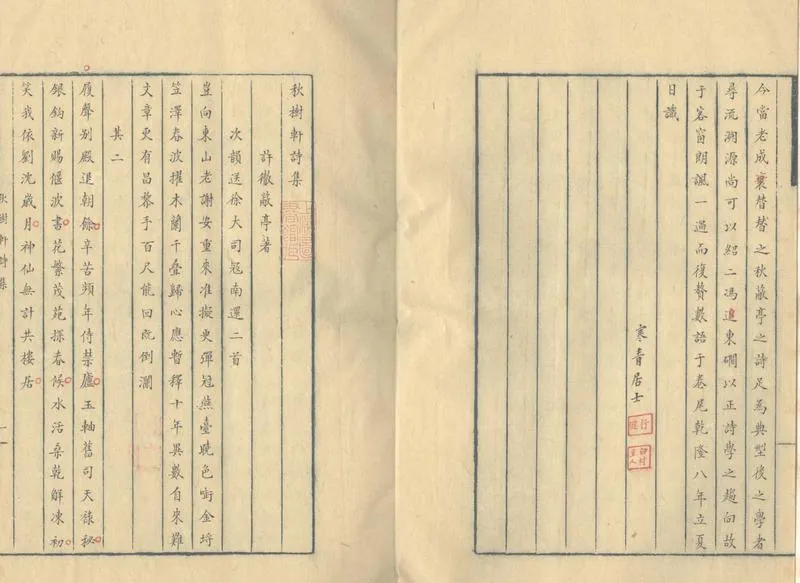 今當老成襄替替之秋蔽亭之詩足為典型後之學者
尋流溯源尚可以紹二馮進東磵以正詩學之趨向故
于客窗朗諷一過而復贅數語于卷尾乾隆八年立夏
日識
寒青居士
秋樹軒詩集
許徹蔽亭著
次韻送徐大司冦南還二首
豈向東山老謝安重來准擬更彈冠燕臺曉色啣金埒
笠澤春波擢木蘭千疊歸心應暫釋十年異數自來難
文章更有昌黎手百尺能回既倒瀾
其二
履聲別殿退朝餘辛苦頻年侍禁廬玉軸舊司天祿秘
銀鈎新賜偃波書花繁茂苑探春候水活桑乾解凍初
笑我依劉沈歲月神仙無計共樓居
秋樹軒詩集
一